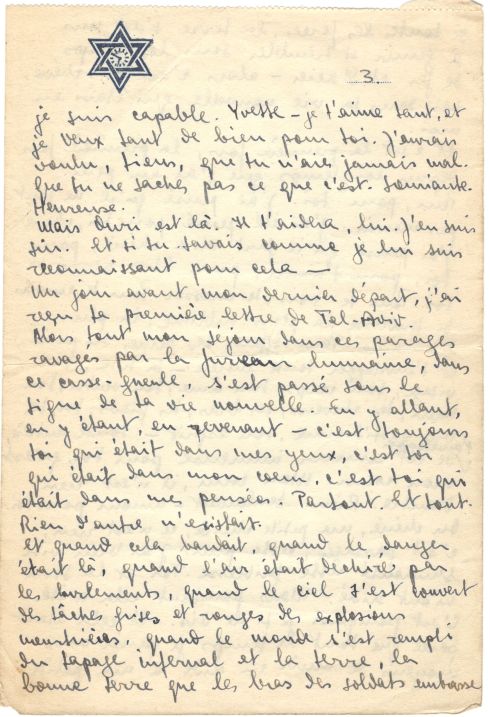 3.
je suis capable. Yvette – je t'aime tant, et
je veux tant de bien pour toi. J'aurais
voulu, tiens, que tu n'aies jamais mal.
Que tu ne saches pas ce que c'est. Souriante.
Heureuse.
Mais Ouri est là. Il t'aidera, lui. J'en suis
sûr. Et si tu savais comme je lui suis
reconnaissant pour cela —
Un jour avant mon dernier départ, j'ai
reçu ta première lettre de Tel-Aviv.
Alors tout mon séjour dans ces parages
ravagés par la fureur humaine, dans
ce casse-gueule, s'est passé sous le
signe de ta vie nouvelle. En y allant,
en y étant, en revenant – c'est toujours
toi qui était dans mes yeux, c'est toi
qui était dans mon coeur, c'est toi qui
était dans me pensées. Partout. Et tout.
Rien d'autre n'existait.
Et quand cela bardait, quand le danger
était là, quand l'air était déchiré par
les hurlements, quand le ciel s'est couvert
des tâches grises et rouges des explosions
meurtrières, quand le monde s'est rempli
du tapage infernal et la terre, la
bonne terre que les bras des soldats embrasse